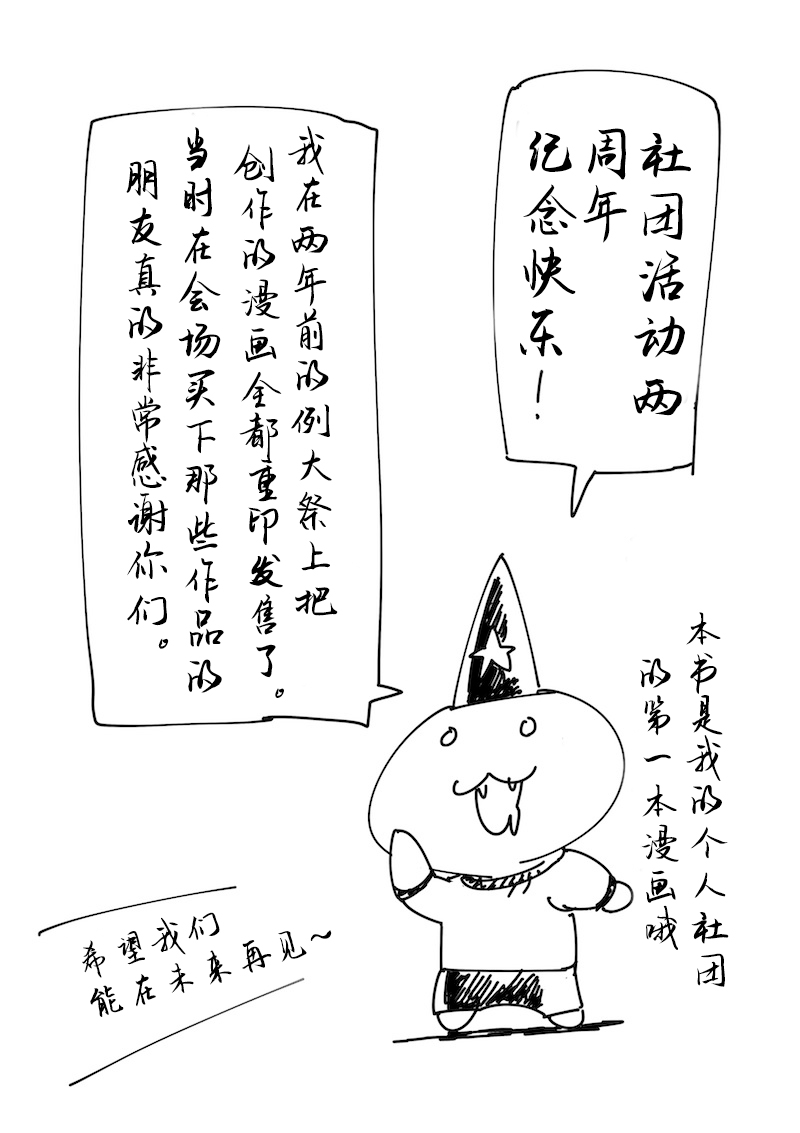 社团活动两
周年
纪念快乐！
我在两年前的例大祭上把
创作的漫画全都重印发售了。
当时在会场买下那些作品的
朋友真的非常感谢你们。
本书是我的个人社团
的第一本漫画哦
希望我们
能在未来再见~